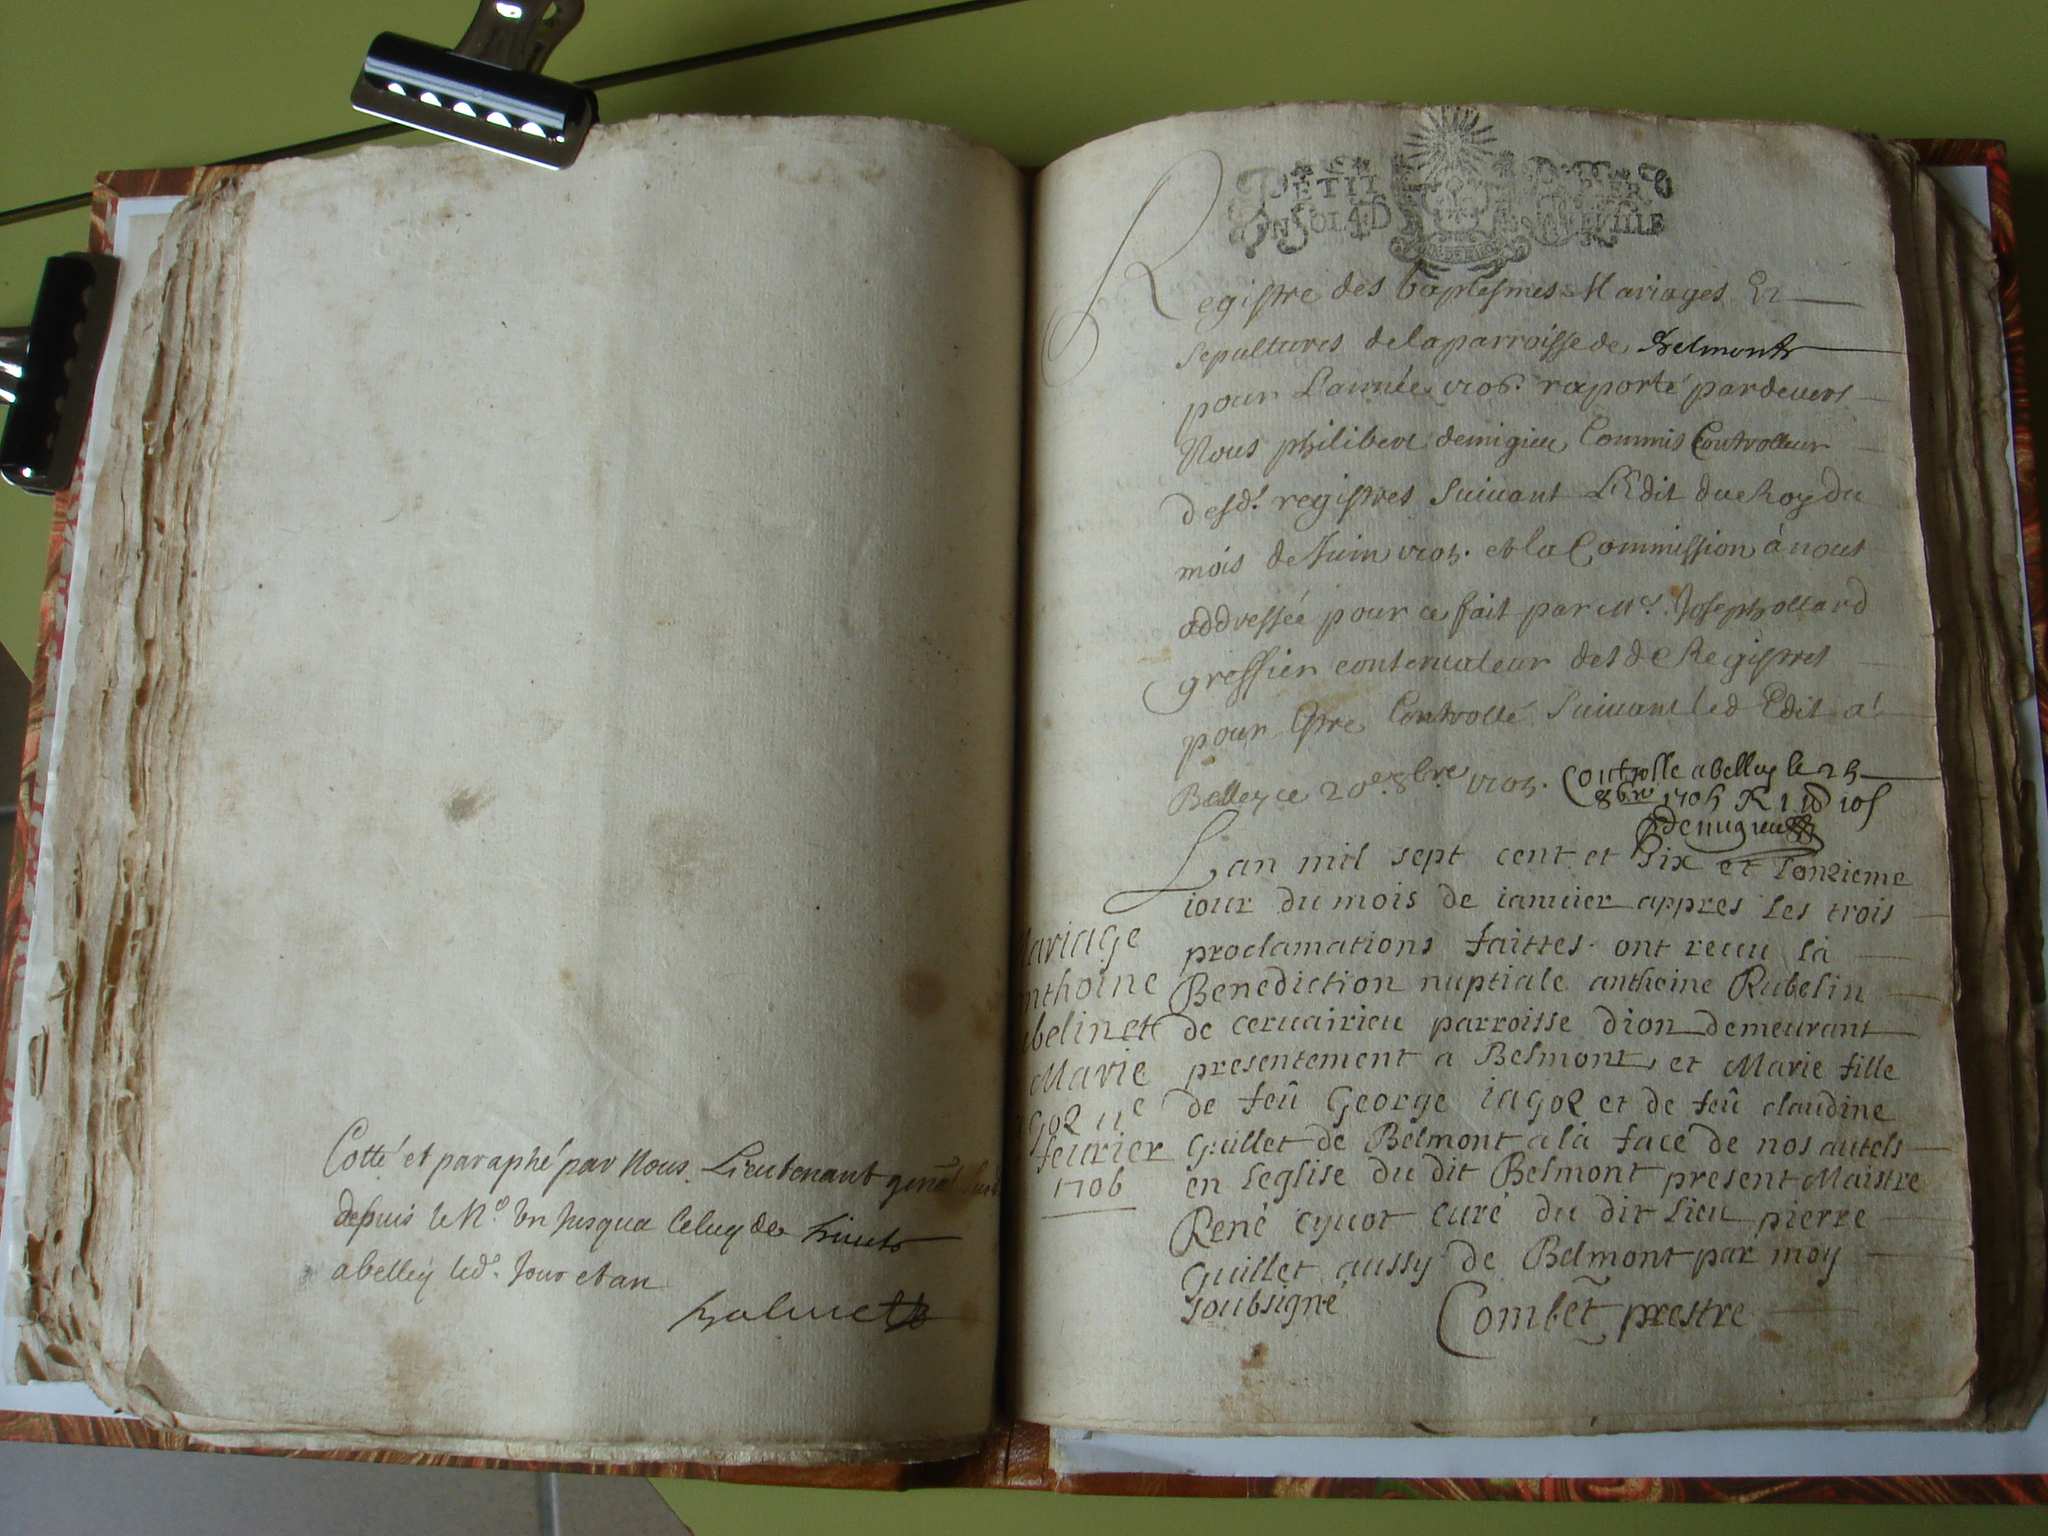 Cotté et paraphé par Nous Lieutenant
depuis le N.º Un Jusqua Celuy de huict
a belley led. Jour et an
PETIT PAPIER
UN SOL 4 D LA FEUILLE
Registre des baptesmes Mariages Et
sepultures de la parroisse de Belmont
pour L'année 1706. raporté pardevers
Nous philibert demigieu Commis Controlleur
desd. registres suivant L'Edit du Roy du
mois de Juin 1705. et la Commission à nous
addressée pour ce fait par Mr. Joseph
greffier conservateur desd Registres
pour Estre Controllé Suivant led Edit a
Belley ce 20e. 8bre 1705.
Controlle a belley le 25
8bre 1705 R 10s
Demigieu
L'an mil sept cent et six et l'onzieme
iour du mois de ianuier appres les trois
proclamations faittes ont receu la
Benediction nuptiale anthoine Rubelin
de ceruairieu parroisse dion demeurant
presentement a Belmont et Marie fille
de feû George iagoz et de feû claudine
Guillet de Belmont a la face de nos autels
en leglise du dit Belmont present Maistre
René cyuot curé du dit lieu pierre
Guillet aussy de Belmont par moy
soubsigné Combet prestre
ariage
nthoine
ubelin et
Marie
goz 11e
feurier
1706